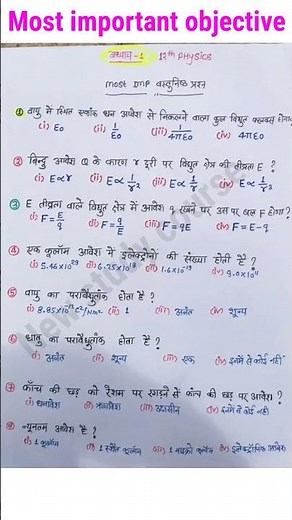 Most important objective
अध्याय-1 12th PHYSICS
most Imp वस्तुनिष्ठ प्रश्न
① वायु में स्थित स्वांक धन आवेश से निकलने वाला कुल विद्युत फ्लक्स होगा
(i) ε0 (ii) 1/ε0 (iii) 1/4πε0 (iv) 4πε0
② बिन्दु आवेश Q के कारण r दूरी पर विद्युत क्षेत्र की तीव्रता E ?
(i) E∝r (ii) E∝1/r² (iii) E∝1/r (iv) E∝1/r³
③ E तीव्रता वाले विद्युत क्षेत्र में आवेश q रखने पर उस पर बल F होगा ?
(i) F=E/q (ii) F=q/E (iii) F=qE (iv) F=E-q
④ एक कूलॉम आवेश में इलेक्ट्रॉनों की संख्या होती है ?
(i) 5.46×10²⁹ (ii) 6.25×10¹⁸ (iii) 1.6×10¹⁹ (iv) 9.0×10¹¹
⑤ वायु का परावैद्युतांक होता है ?
(i) 8.85×10⁻¹² C²/Nm² (ii) 1 (iii) अनंत (iv) शून्य
⑥ धातु का परावैद्युतांक होता है ?
(i) अनंत (ii) शून्य (iii) एक (iv) इनमें से कोई नहीं
⑦ काँच की छड़ को रेशम पर रगड़ने से कांच की छड़ पर आवेश ?
(i) धनावेश (ii) ऋणावेश (iii) उदासीन (iv) इनमें से कोई नहीं
⑧ न्यूनतम आवेश है ?
(i) 1 कूलॉम (ii) 1 स्टैट कूलॉम (iii) 1 माइक्रो कूलॉम (iv) इलेक्ट्रॉनिक आवेश